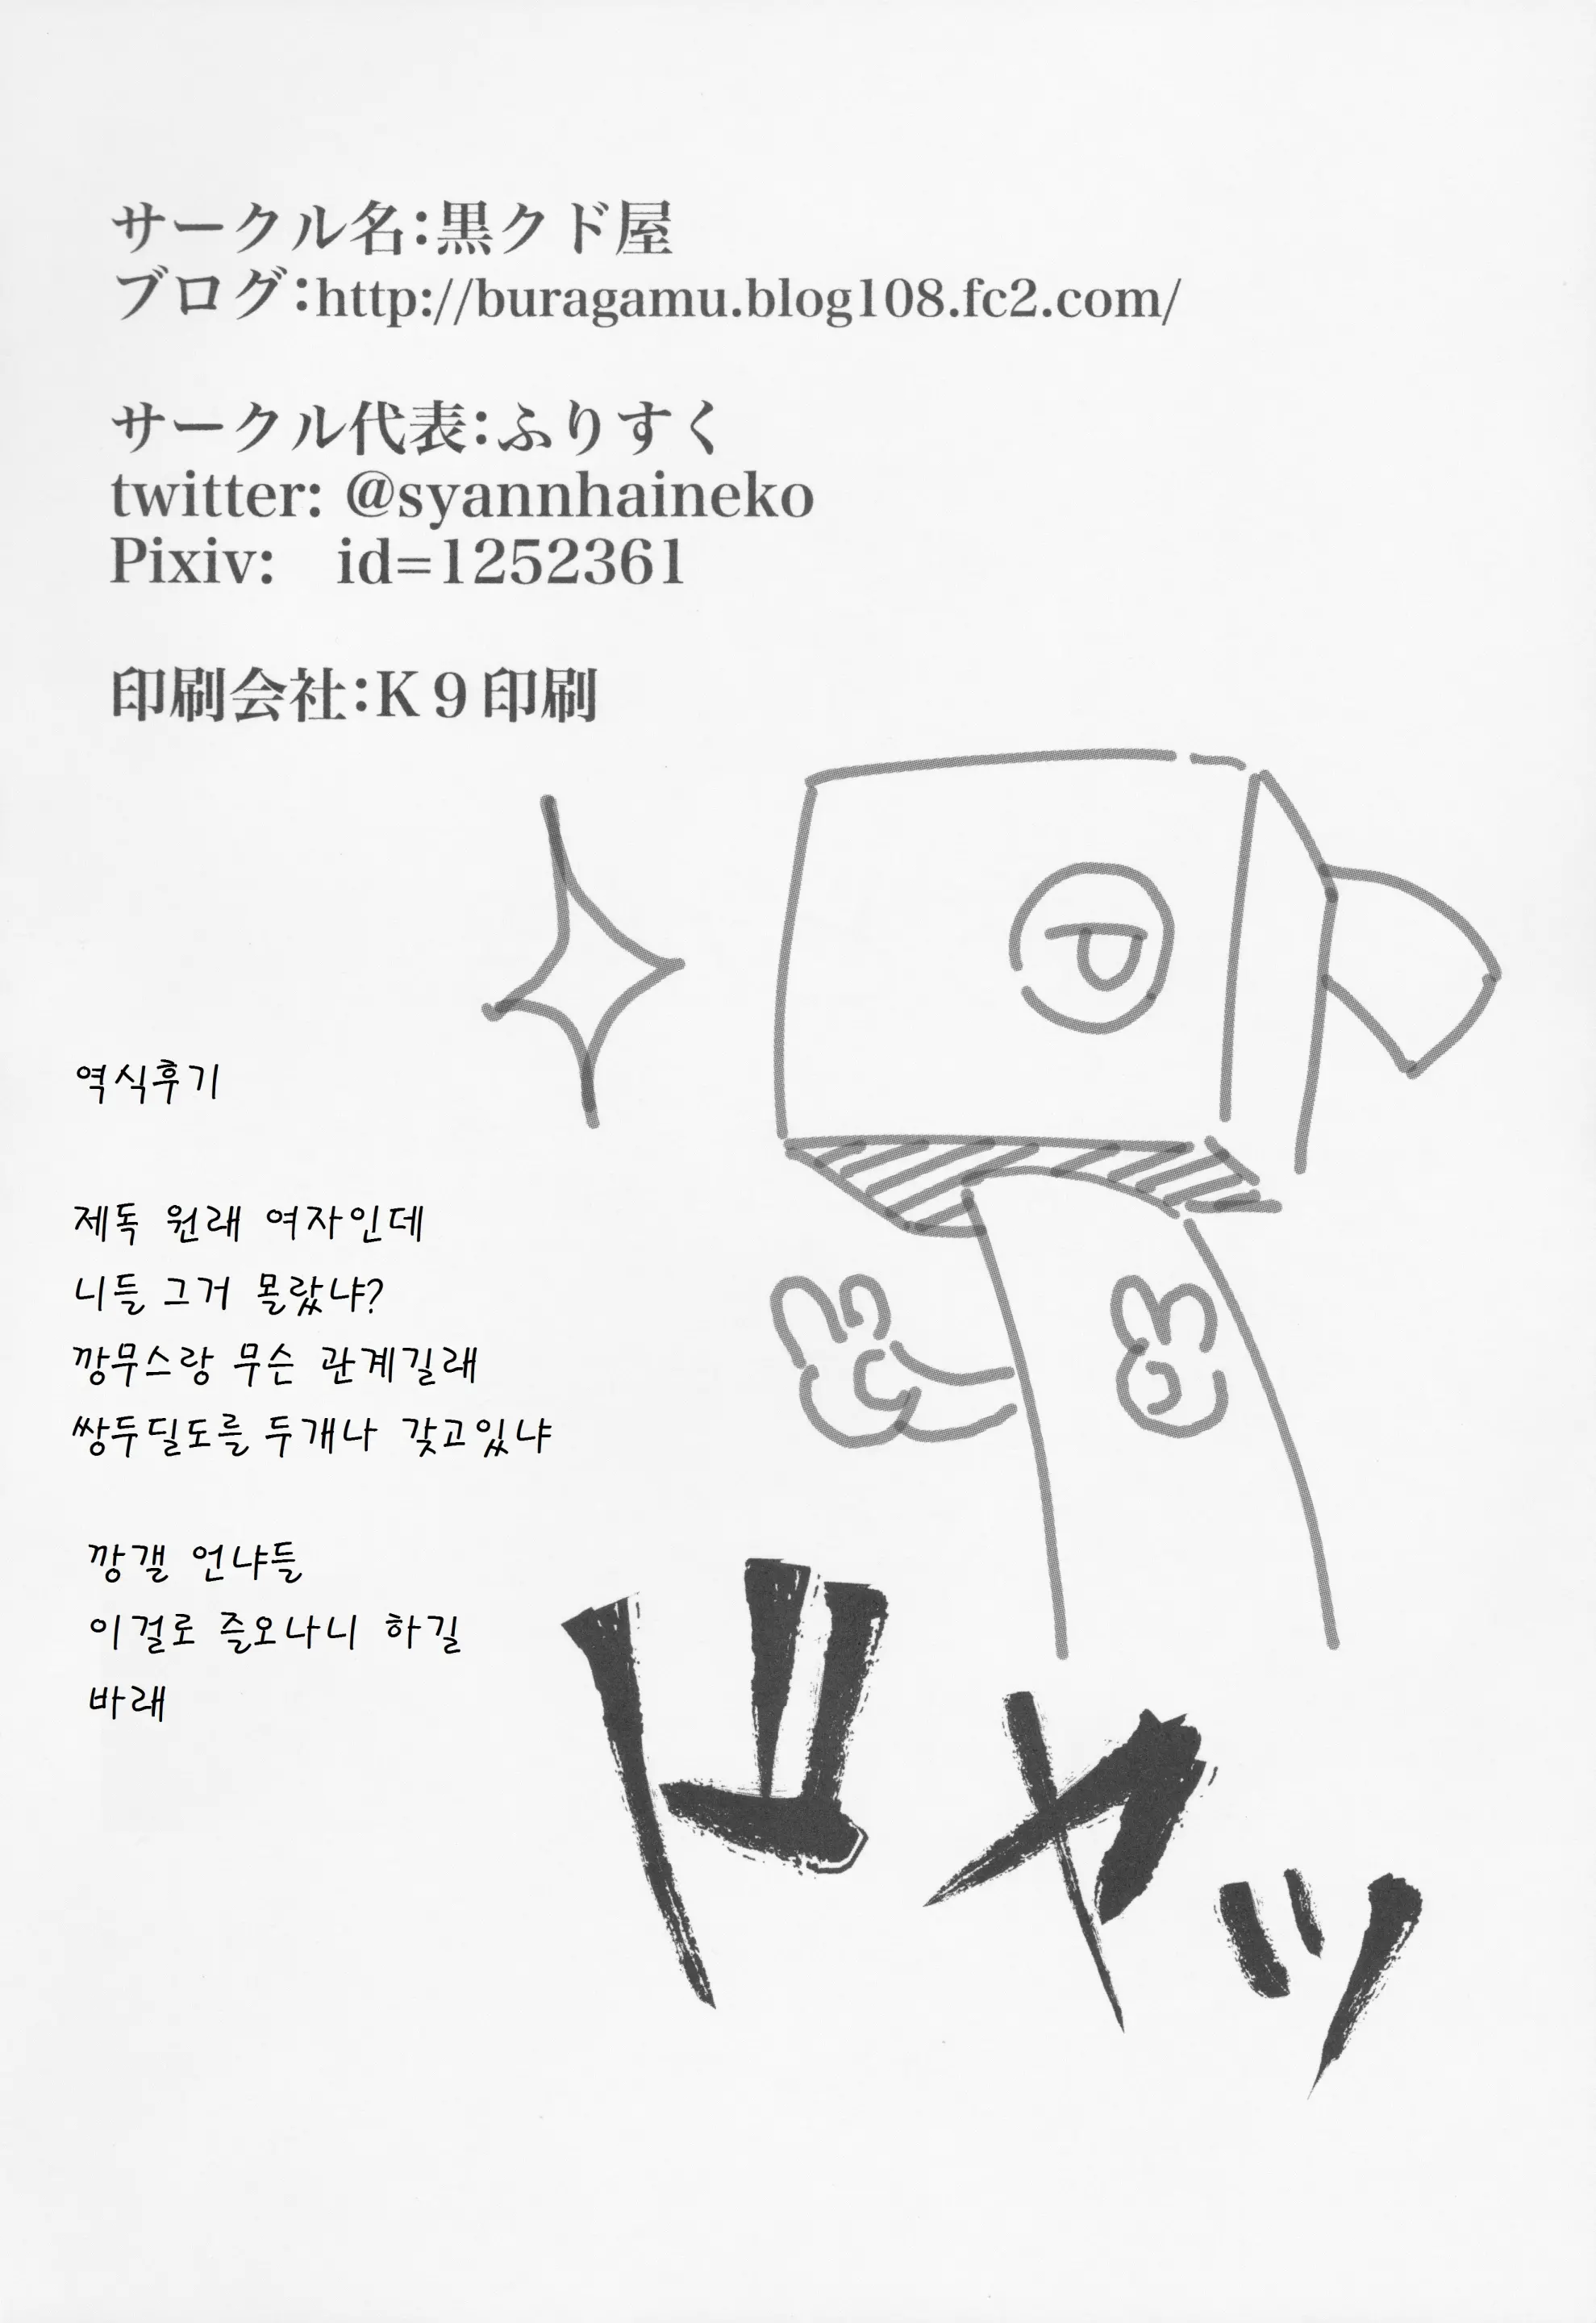 サークル名:黒クド屋
ブログ:http://buragamu.blog108.fc2.com/
サークル代表:ふりすく
twitter: @syannhaineko
Pixiv:　id=1252361
印刷会社:K９印刷
역식후기
제독 원래 여자인데
니들 그거 몰랐냐?
깡무스랑 무슨 관계길래
쌍두딜도를 두개나 갖고있냐
깡갤 언냐들
이걸로 즐오나니 하길
바래
ドヤッ